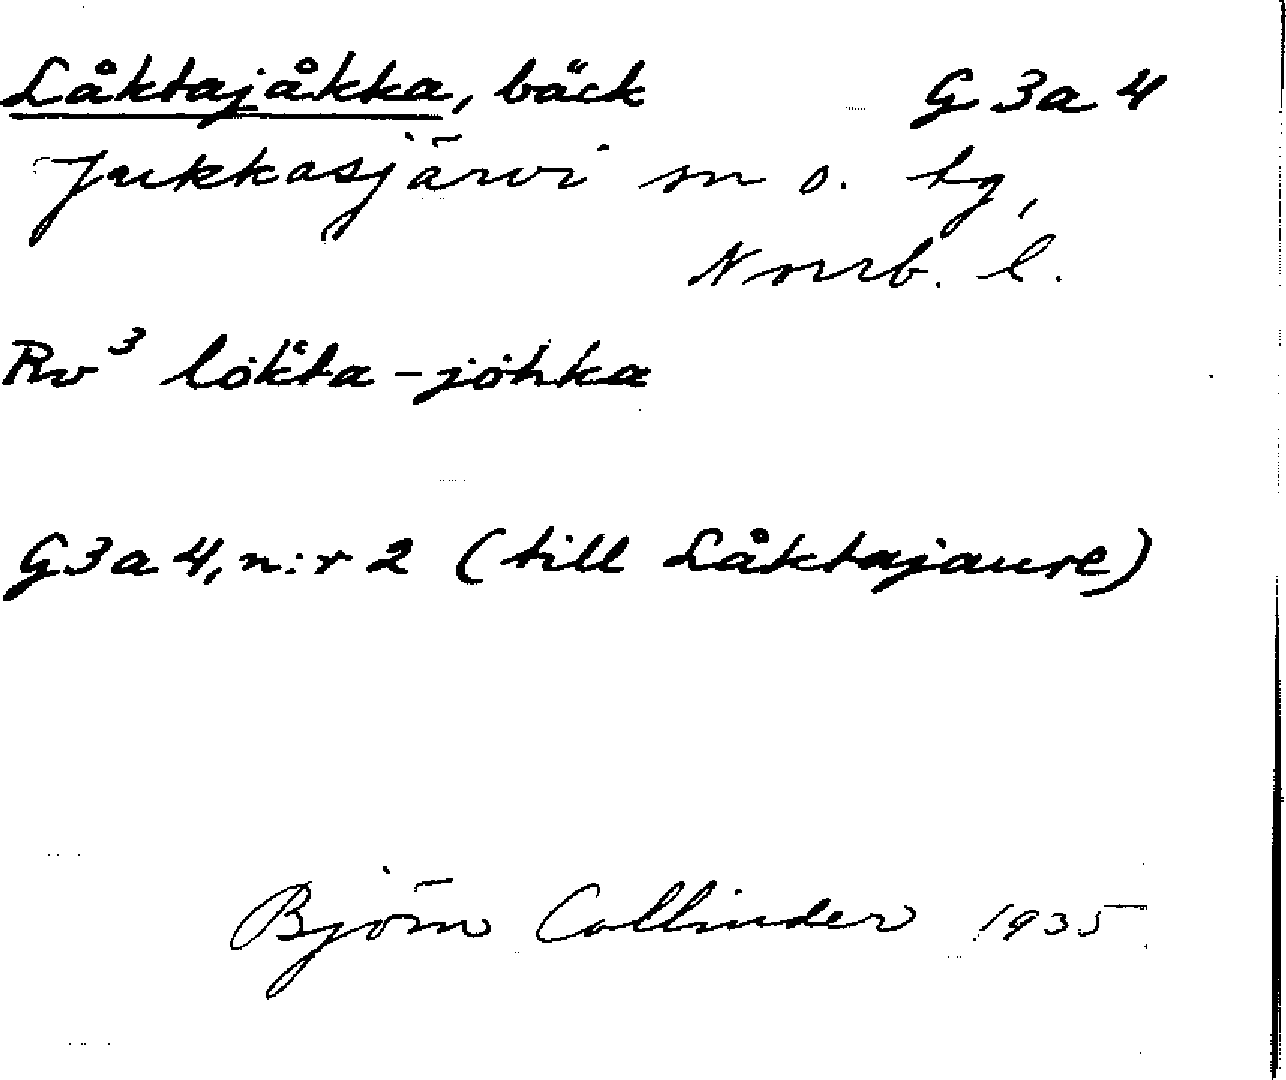 Låktajåkka, bäck G 3 a 4
Jukkasjärvi sn o. tg,
Norrb. l.
Rv³ lǫkta-jǫhka
G3a4, n:r 2 (till Låktajaure)
Björn Collinder 1935